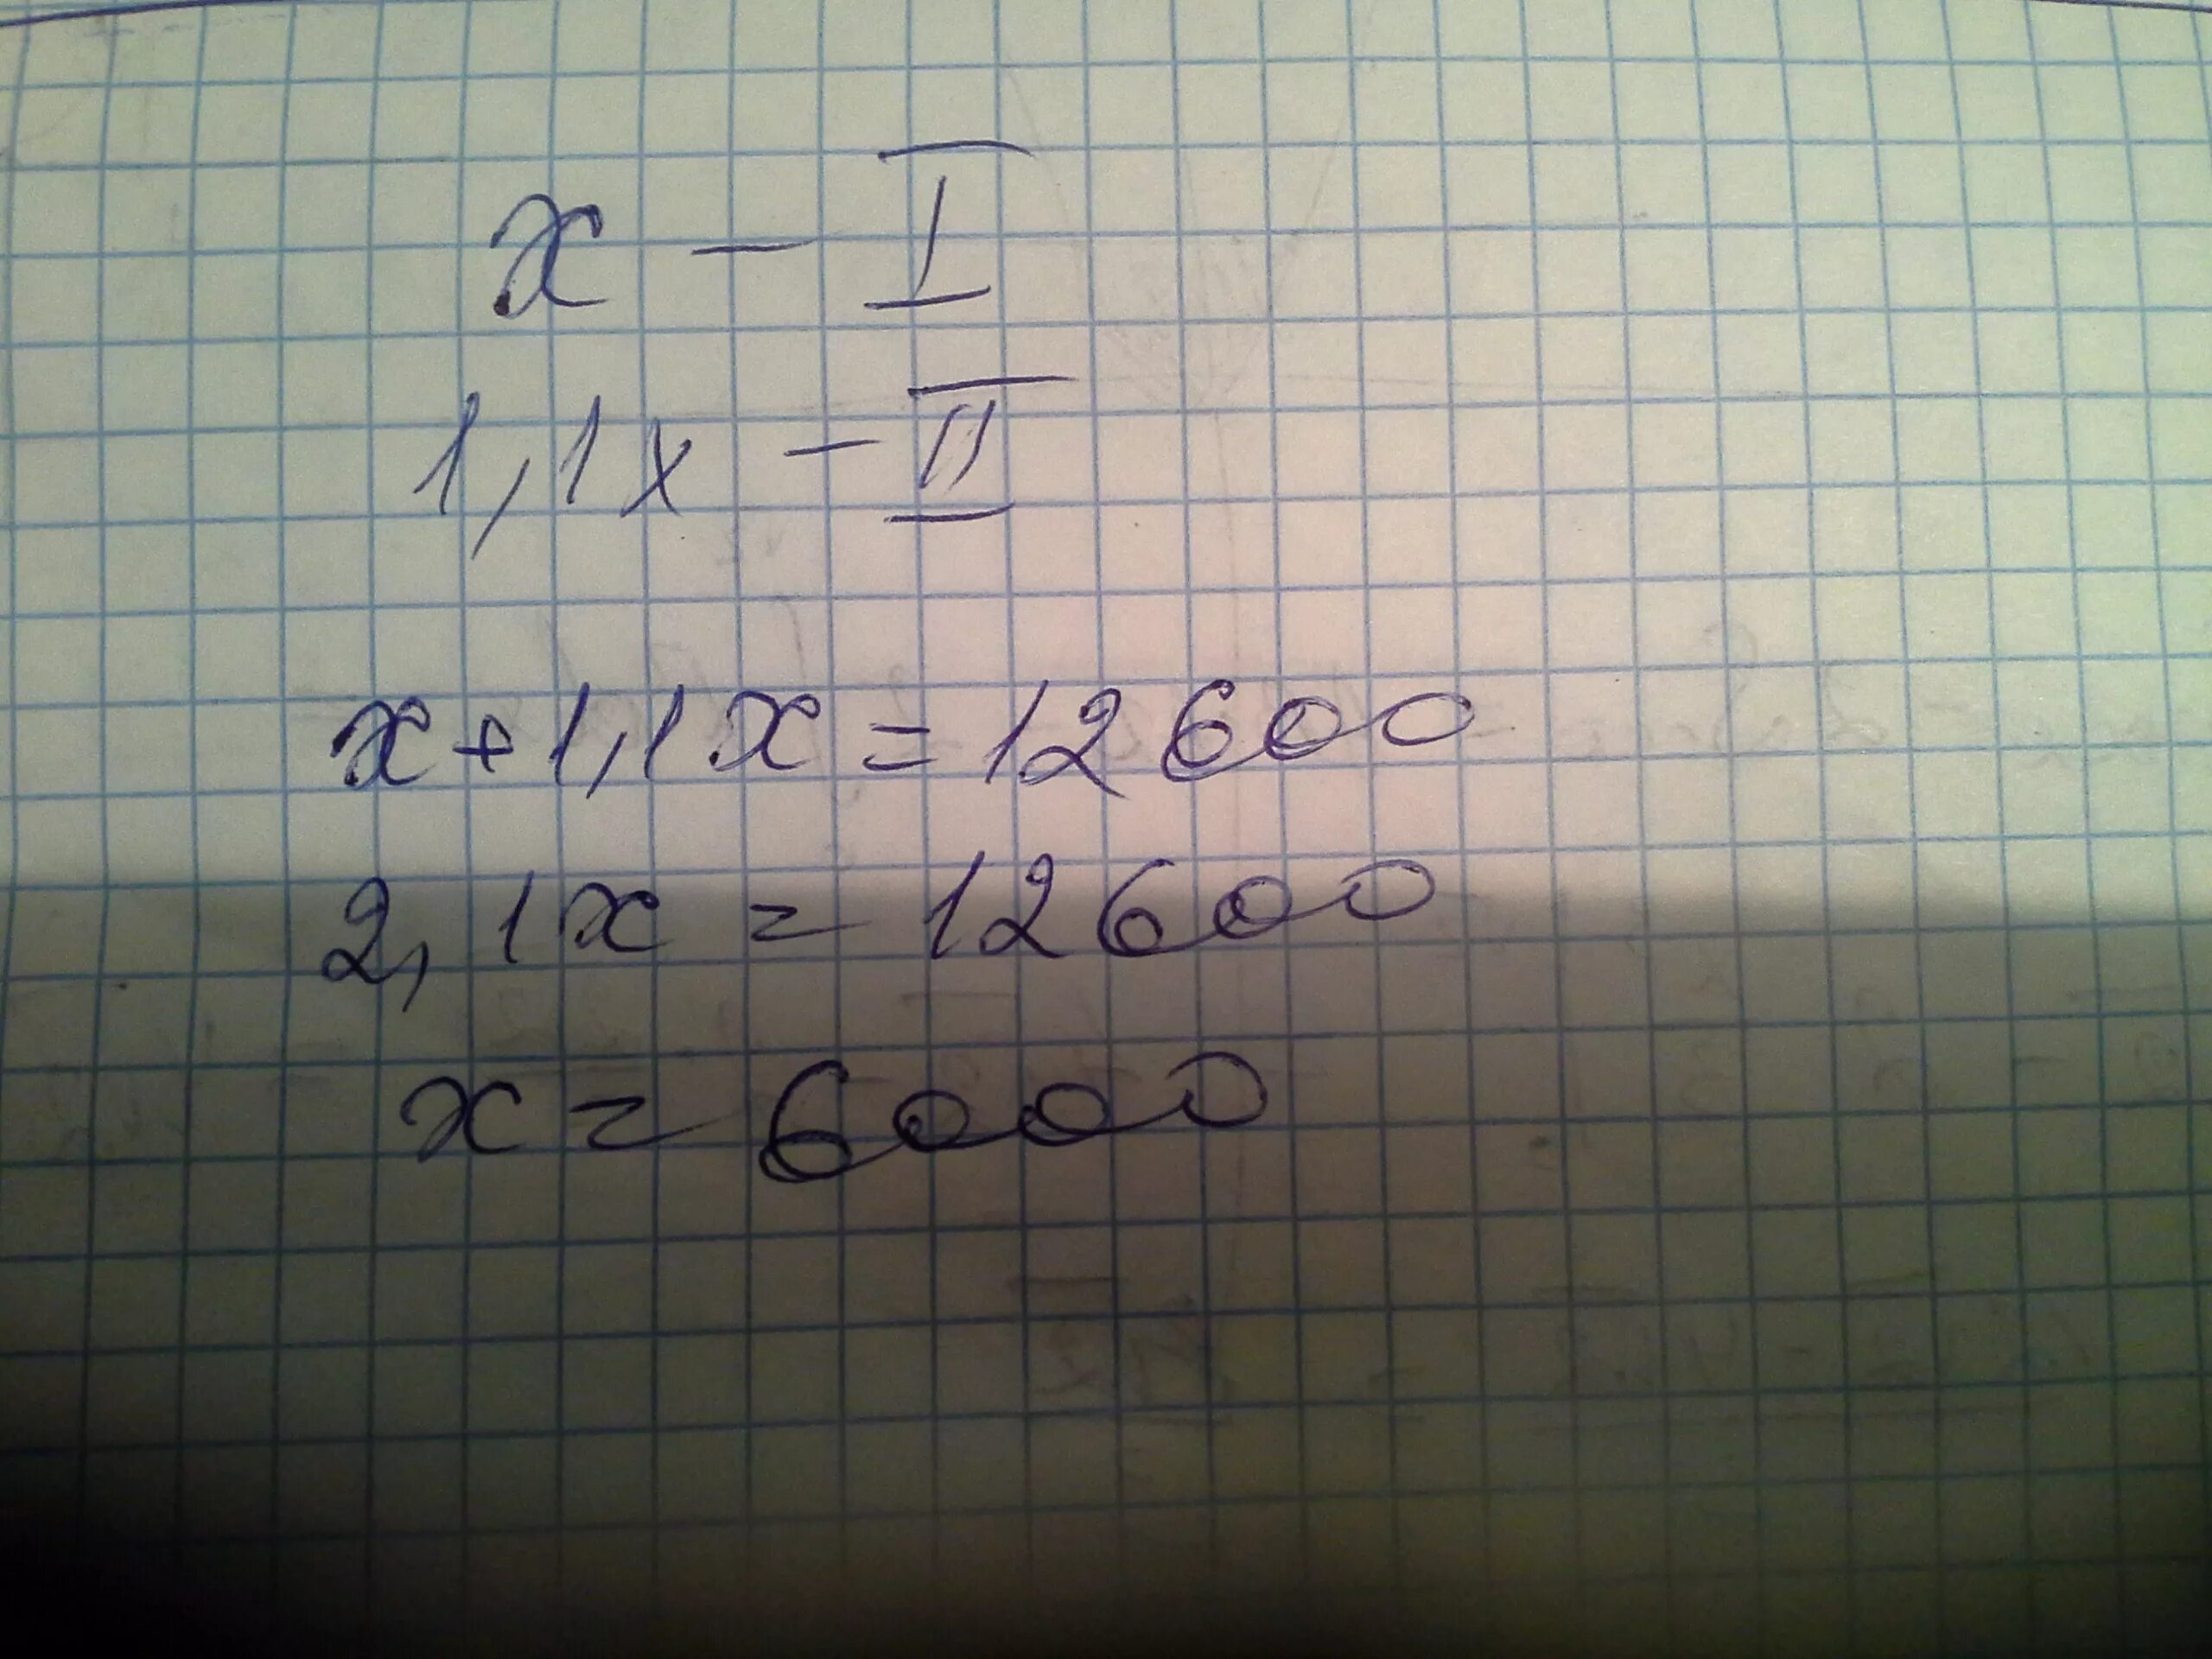 x - I
1,1x - II
x+1,1x=12600
2,1x=12600
x=6000